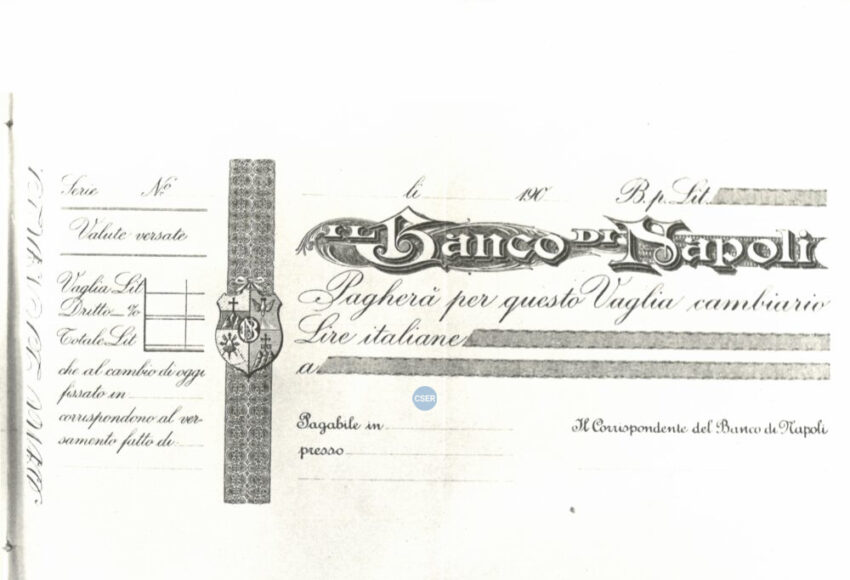 Serie Nº
Valute versate
Vaglia Lit
Dritto %
Totale Lit
che al cambio di oggi
fissato in
corrispondono al ver-
samento fatto di
li 190 B. p. Lit.
IL Banco DI Napoli
Pagherà per questo Vaglia cambiario
Lire italiane
a
CSER
Pagabile in
presso
Il Corrispondente del Banco di Napoli